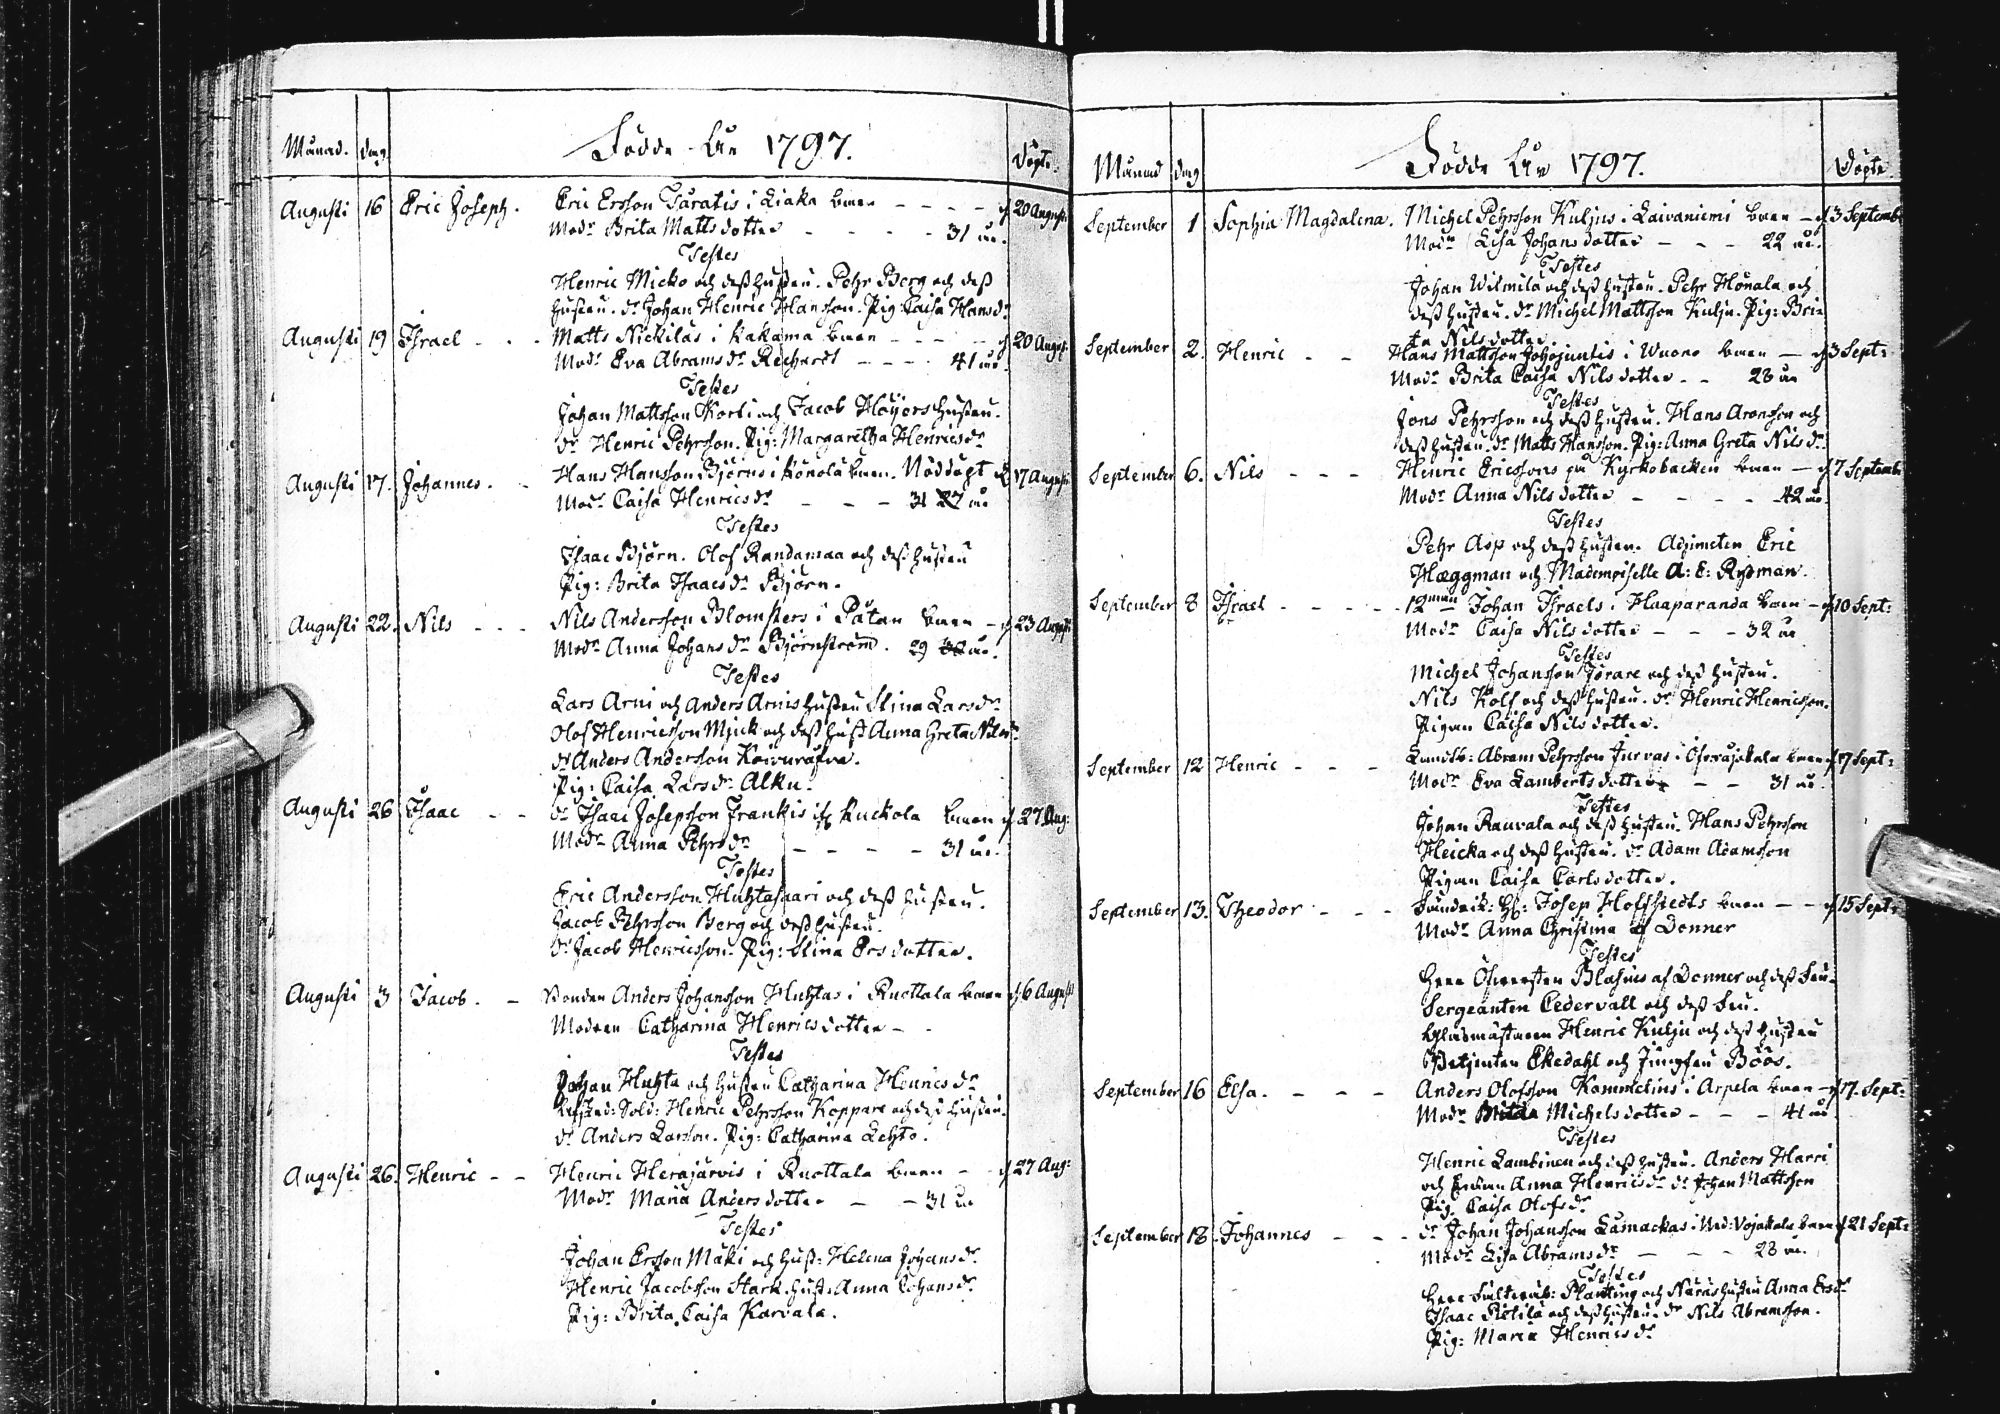 Månad. dag. Födde åhr 1797. Döpte.
Augusti 16 Eric Joseph. Eric Ersson Taratis i Liaka barn - - - - d 20 Augusti
Modr Brita Matts dotter - - - - 31 år.
Testes
Henric Micko och dess hustru. Pehr Berg och dess
hustru. dr Johan Henric Hansson. Pig: Caisa Hansdr
Augusti 19 Israel - - - Matts Nickilas i Kakama barn - - - - d 20 August:
Modr Eva Abrams dr Rechardt - - - - 41 år.
Testes
Johan Mattsson Korti och Jacob Höijers hustru.
dr Henric Pehrsson. Pig: Margaretha Henricsdr
Augusti 17. Johannes. - - Hans Hansson Björns i Kŏnŏlä barn. Nöddöpt d 17 Augusti
Modr Caisa Henricsdr - - - 31 27 år
Testes
Isaac Björn. Olof Randamaa och dess hustru
Pig: Brita Isaacsdr Björn.
Augusti 22. Nils - - - Nils Andersson Blomsters i Påtan barn - d 23 Augusti
Modr Anna Johansdr Björnström. 29 30 år.
Testes
Lars Arni och Anders Arnis hustru Stina Larsdr
Olof Henricsson Mjick och dess hust Anna Greta Nilsdr
dr Anders Andersson
Pig: Caisa Larsdr Alku.
Augusti 26 Isaac - - dr Isaac Josepsson Frankis if Kuckola barn d 27 Aug:
Modr Anna Pehrsdr - - - - - 31 år.
Testes
Eric Andersson Huhtasaari och dess hustru.
Jacob Pehrsson Berg och dess hustru.
dr Jacob Henricsson. Pig: Stina Ers dotter.
Augusti 3 Jacob. - Bonden Anders Johansson Huhtas i Ruottala barn d 6 August
Modren Catharina Henrics dotter - -
Testes
Johan Huhta och hustru Catharina Henricsdr
Afsked: Sold: Henric Pehrsson Koppare och dess hustru.
dr Anders Larsson. Pig: Catharina Lehto.
Augusti 26. Henric - - Henric Herajärvis i Ruottala barn - - d 27 Aug:
Modr Maria Anders dotter - - 31 år
Testes
Johan Ersson Mäki och hust: Helena Johansdr
Henric Jacobsson Stark. hust: Anna Johansdr
Pig: Brita Caisa Karvala.
Månad dag Födde åhr 1797. Döpte.
September 1 Sophia Magdalena. Michel Pehrsson Kuljus i Laivaniemi barn - d 3 Septemb
Modr Lisa Johans dotter - - - 22 år.
Testes
Johan Wilmilä och dess hustru. Pehr Hŏnala och
dess hustru. dr Michel Mattsson Kulju. Pig: Bri-
ta Nils dotter.
September 2. Henric - - Hans Mattsson Johojuntis i Wuono barn - d 3 Sept:
Modr Brita Caisa Nils dotter - - 28 år
Testes
Jöns Pehrsson och dess hustru. Hans Aronsson och
dess hustru. dr Matts Hansson. Pig: Anna Greta Nilsdr
September 6. Nils - - - Henric Ericssons på Kyrkobacken barn - d 7 Septemb
Modr Anna Nils dotter - - - - 42 år.
Testes
Pehr Asp och dess hustru. Adjuncten Eric
Hæggman och Mademoiselle A: E: Rydman.
September 8 Israel - - - - - 12man Johan Israels i Haaparanda barn - d 10 Sept:
Modr Caisa Nils dotter - - - 32 år
Testes
Michel Johansson Törare och dess hustru.
Nils Kolf och dess hustru. dr Henric Henricsson.
Pigan Caisa Nils dotter.
September 12 Henric - - - Landtb: Abram Pehrsson Jurvas i Öfvervojakala barn d 17 Sept:
Modr Eva Lamberts dotter - - 31 år.
Testes
Johan Rauvala och dess hustru. Hans Pehrsson
Heicka och dess hustru. dr Adam Adamsson
Pigan Caisa Carls dotter.
September 13. Theodor - - - Fändrik: H: Josep Hoffstedts barn - - d 15 Sept:
Modr Anna Christina af Donner
Testes
Herr Öfversten Blasius af Donner och dess Fru.
Sergeanten Cedervall och dess Fru.
Glasmästaren Henric Kulju och dess hustru
Betjenten Ekedahl och Jungfru Böös.
September 16 Elsa. - - - Anders Olofsson Kommelins i Arpela barn - d 17. Sept:
Modr Michels dotter - - - 41 år
Testes
Henric Lambinen och dess hustru. Anders Harri
och Enkan Anna Henricsdr dr Johan Mattsson
Pig. Caisa Olofsdr
September 18 Johannes - - - dr Johan Johansson Lamackas i Ned: Vojakala barn d 21 Sept:
Modr Lisa Abramsdr - - - - 28 år.
Testes
Herr Planting och Naras hustru Anna Ersdr
Isaac Pietilä och dess hustru. dr Nils Abramsson.
Pig: Maria Henricsdr